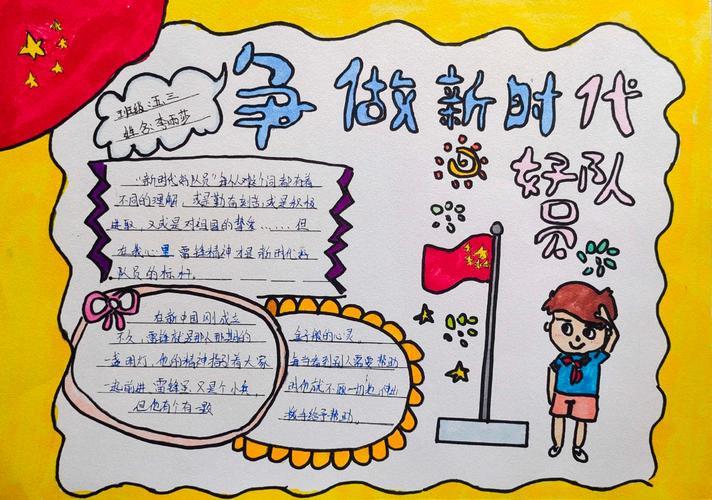 争做新时代
好队员
班级:五三
姓名:李雨莎
"新时代好队员"每个人对这个词都有着
不同的理解,或是勤奋刻苦;或是积极
进取,又或是对祖国的挚爱……但
在我心里雷锋精神才是新时代好
队员的标杆。
在新中国刚成立
不久,雷锋就是那个那期的
一盏明灯,他的精神指引着大家
一起前进,雷锋是又是个小兵,
但他有个有一颗
金子般的心灵,
每当看到别人需要帮助
时他就不顾一切地伸出
援手给予帮助。